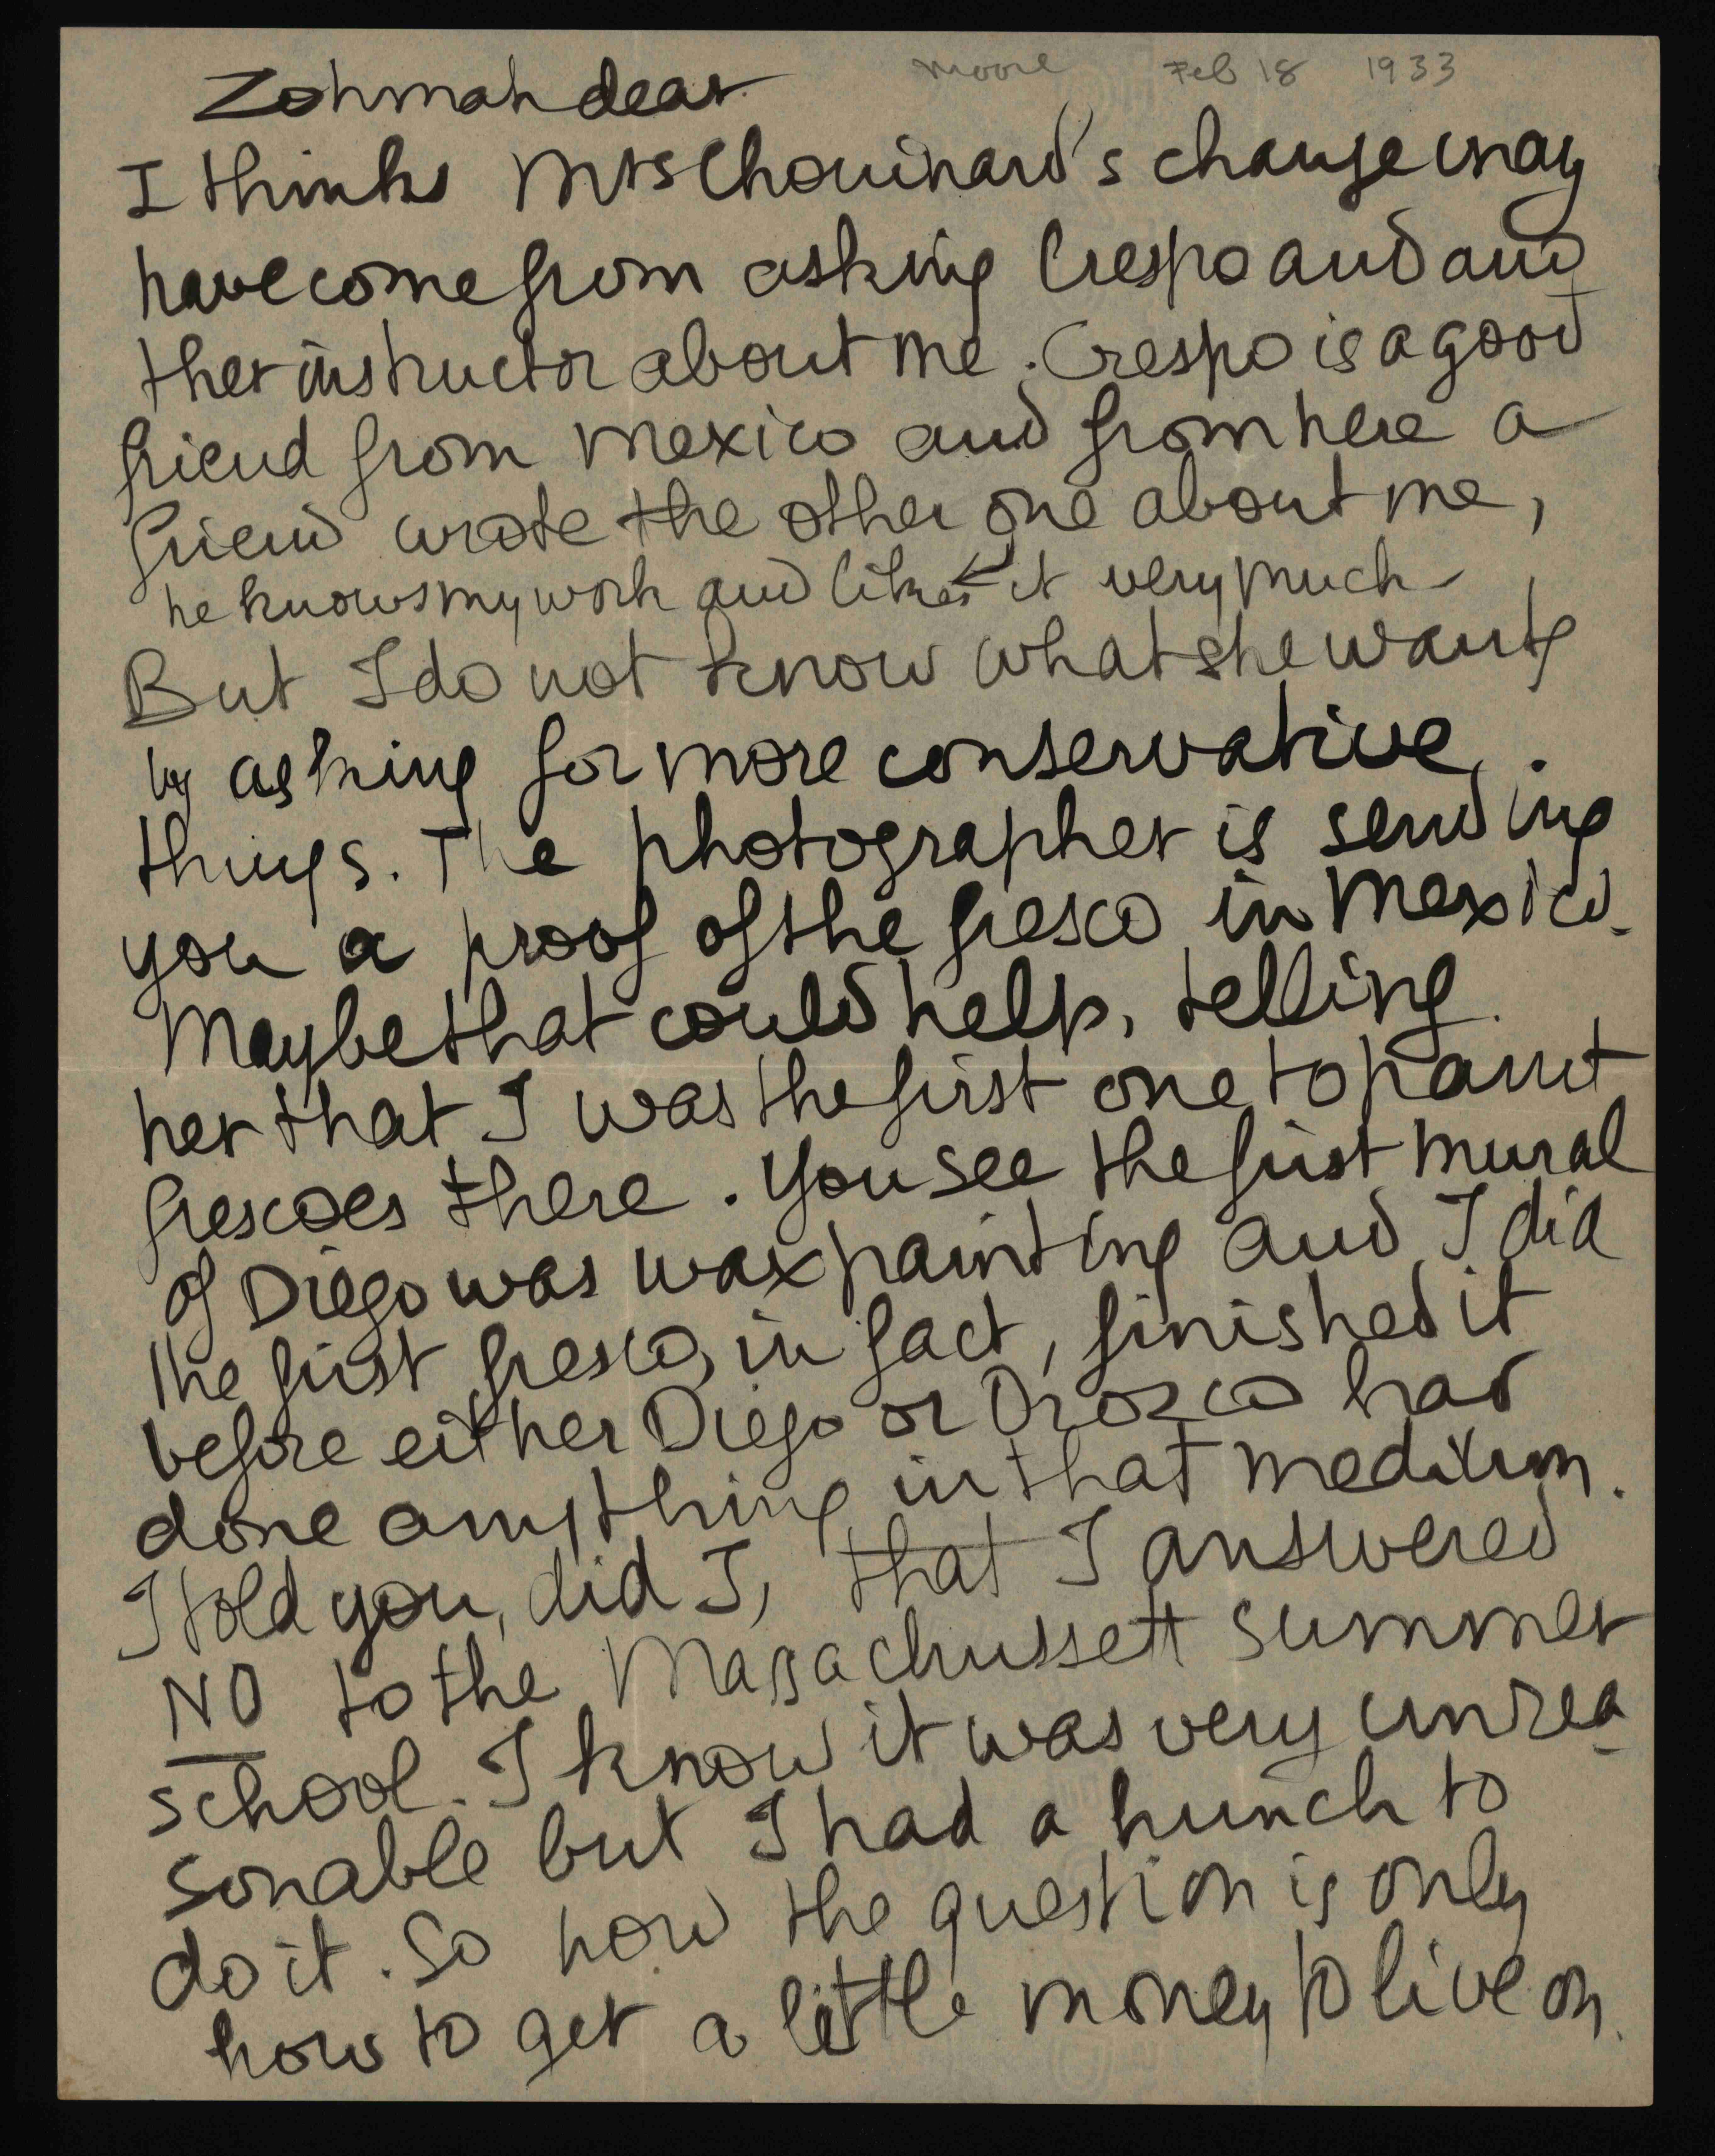 Moore Feb 18 1933
Zohmah dear
I thinks Mrs Chouinard's change may
have come from asking Crespo and and
ther instructor about me. Crespo is a good
friend from Mexico and from here a
friend wrote the other one about me,
he knows my work and likes it very much
But I do not know what she wants
by asking for more conservative
things. The photographer is sending
you a proof of the fresco in Mexico.
Maybe that could help, telling
her that I was the first one to paint
frescoes there. You see the first mural
of Diego was wax painting and I did
the first fresco, in fact, finished it
before either Diego or Orozco had
done anything in that medium.
I told you, did I, that I answered
NO to the Massachussett summer
school. I know it was very unrea
sonable but I had a hunch to
do it. So now the question is only
how to get a little money to live on.